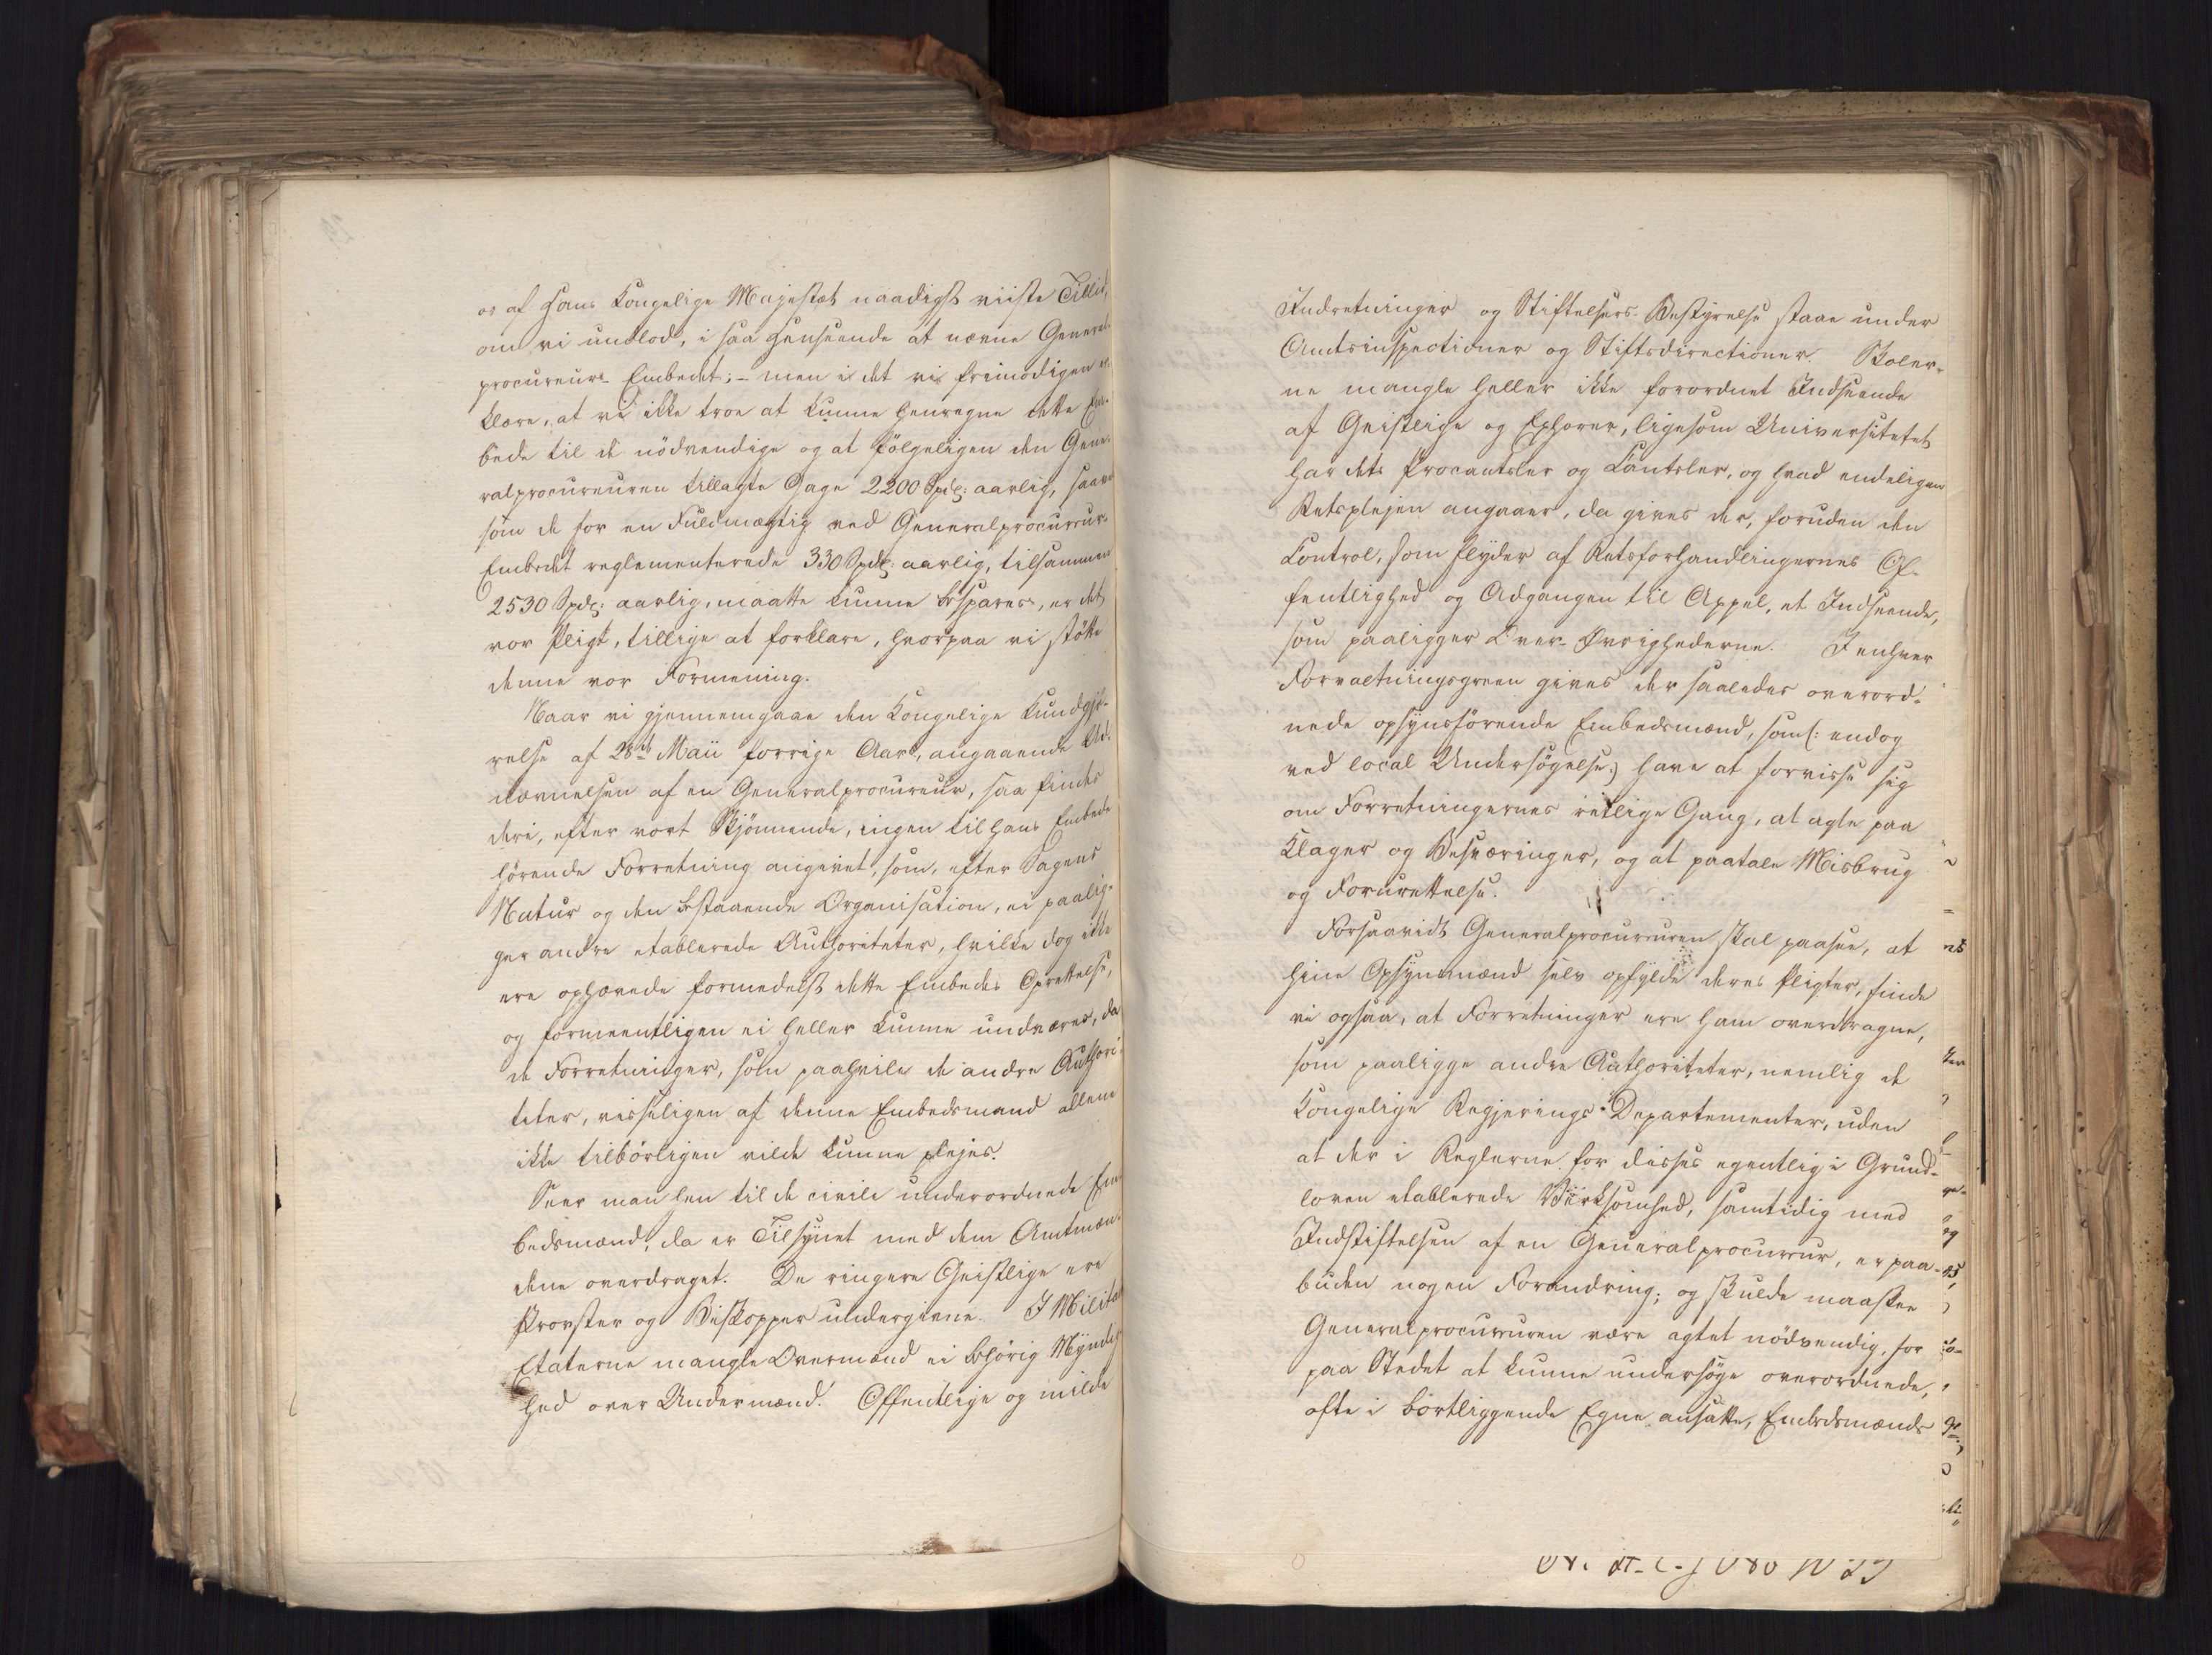 os af Hans Kongelige Majestæt naadigst viiste Tillid,
om vi undlod, i saa Henseende at nævne General-
procureurs-Embedet; - men i det vi frimodigen er-
klære, at vi ikke troe at kunne henregne dette Em-
bede til de nödvendige og at fölgeligen den Gene-
ralprocureuren tillagte Gage 2200 Spd: aarlig, saavel
som de for en Fuldmægtig ved Generalprocureur-
Embedet reglementerede 330 Spd: aarlig, tilsammen
2530 Spd: aarlig, maatte kunne bespares, er det
vor Pligt, tillige at forklare, hvorpaa vi stötte
denne vor Formening.
Naar vi gjennemgaae den Kongelige Kundgjö-
relse af 28de Maii forrige Aar, angaaende Ud-
nævnelsen af en Generalprocureur, saa findes
deri, efter vort Skjönnende, ingen til hans Embede
hörende Forretning angivet, som, efter Sagens
Natur og den bestaaende Organisation, ei paalig-
ger andre etablerede Authoriteter, hvilke dog ikke
ere ophævede formedelst dette Embedes Oprettelse,
og formeentligen ei heller kunne undværes, da
de Forretninger, som paahvile de andre Authori-
teter, visseligen af denne Embedsmand allene
ikke tilbörligen vilde kunne plejes.
Seer man hen til de civile underordnede Em-
bedsmænd, da er Tilsynet med dem Amtmæn-
dene overdraget. De ringere Geistlige ere
Provster og Biskopper undergivne. I Militær
Etaterne mangle Overmænd ei behörig Myndig-
hed over Undermænd. Offentlige og milde
Indretninger og Stiftelsers Bestyrelse staae under
Amtsinspectioner og Stiftsdirectioner. Skoler-
ne mangle heller ikke forordnet Indseende
af Geistlige og Ephorer, ligesom Universitetet
har dets Procantsler og Cantsler, og hvad endeligen
Retsplejen angaaer, da gives der, foruden den
Control, som flyder af Retsforhandlingernes Of-
fentlighed og Adgangen til Appel, et Indseende,
som paaligger Over-Övrighederne. I enhver
Forvaltningsgreen gives der saaledes overord-
nede opsynsförende Embedsmænd, som (: endog
ved local Undersögelse:) have at forvisse sig
om Forretningernes rétlige Gang, at agte paa
Klager og Besværinger, og at paatale Misbrug
og Forurettelse.
Forsaavidt Generalprocureuren skal paasee, at
hine Opsynsmænd selv opfylde deres Pligter, finde
vi ogsaa, at Forretninger ere ham overdragne,
som paaligge andre Authoriteter, nemlig de
Kongelige Regjerings-Departementer, uden
at der i Reglerne for disses egentlig i Grund-
loven etablerede Virksomhed, samtidig med
Indstiftelsen af en Generalprocureur, er paa-
buden nogen Forandring; og skulde maaskee
Generalprocureuren være agtet nödvendig, for
paa Stedet at kunne undersöge overordnede,
ofte i bortliggende Egne ansatte, Embedsmænds